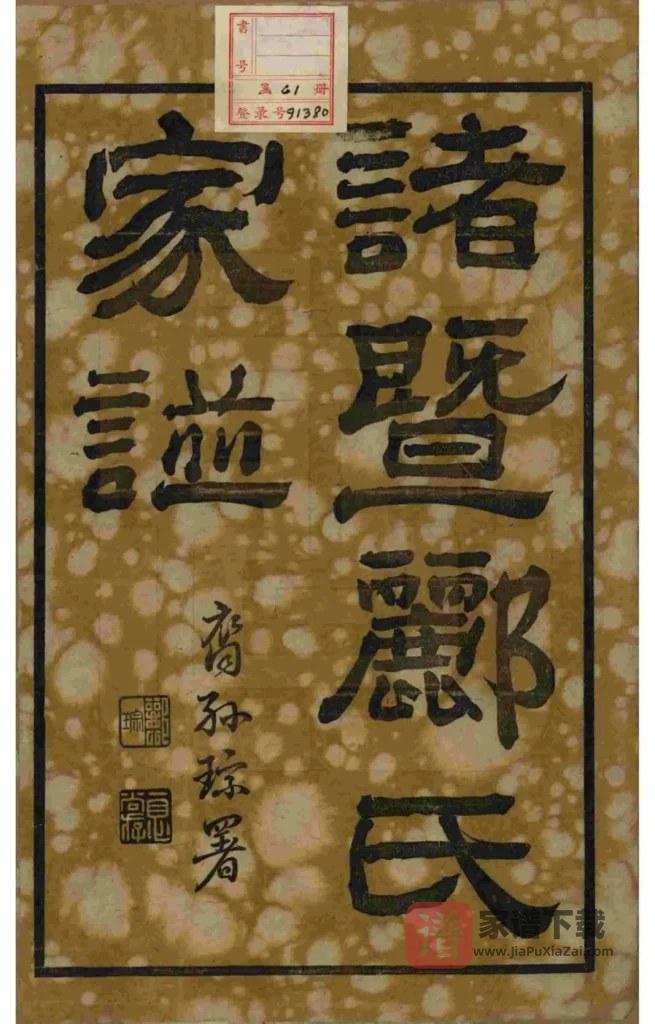 書号
函 61 册
登录号 91380
諸暨酈氏
家譜
裔孫琮署
酈琮
谱 家谱下载
www.JiaPuXiaZai.com